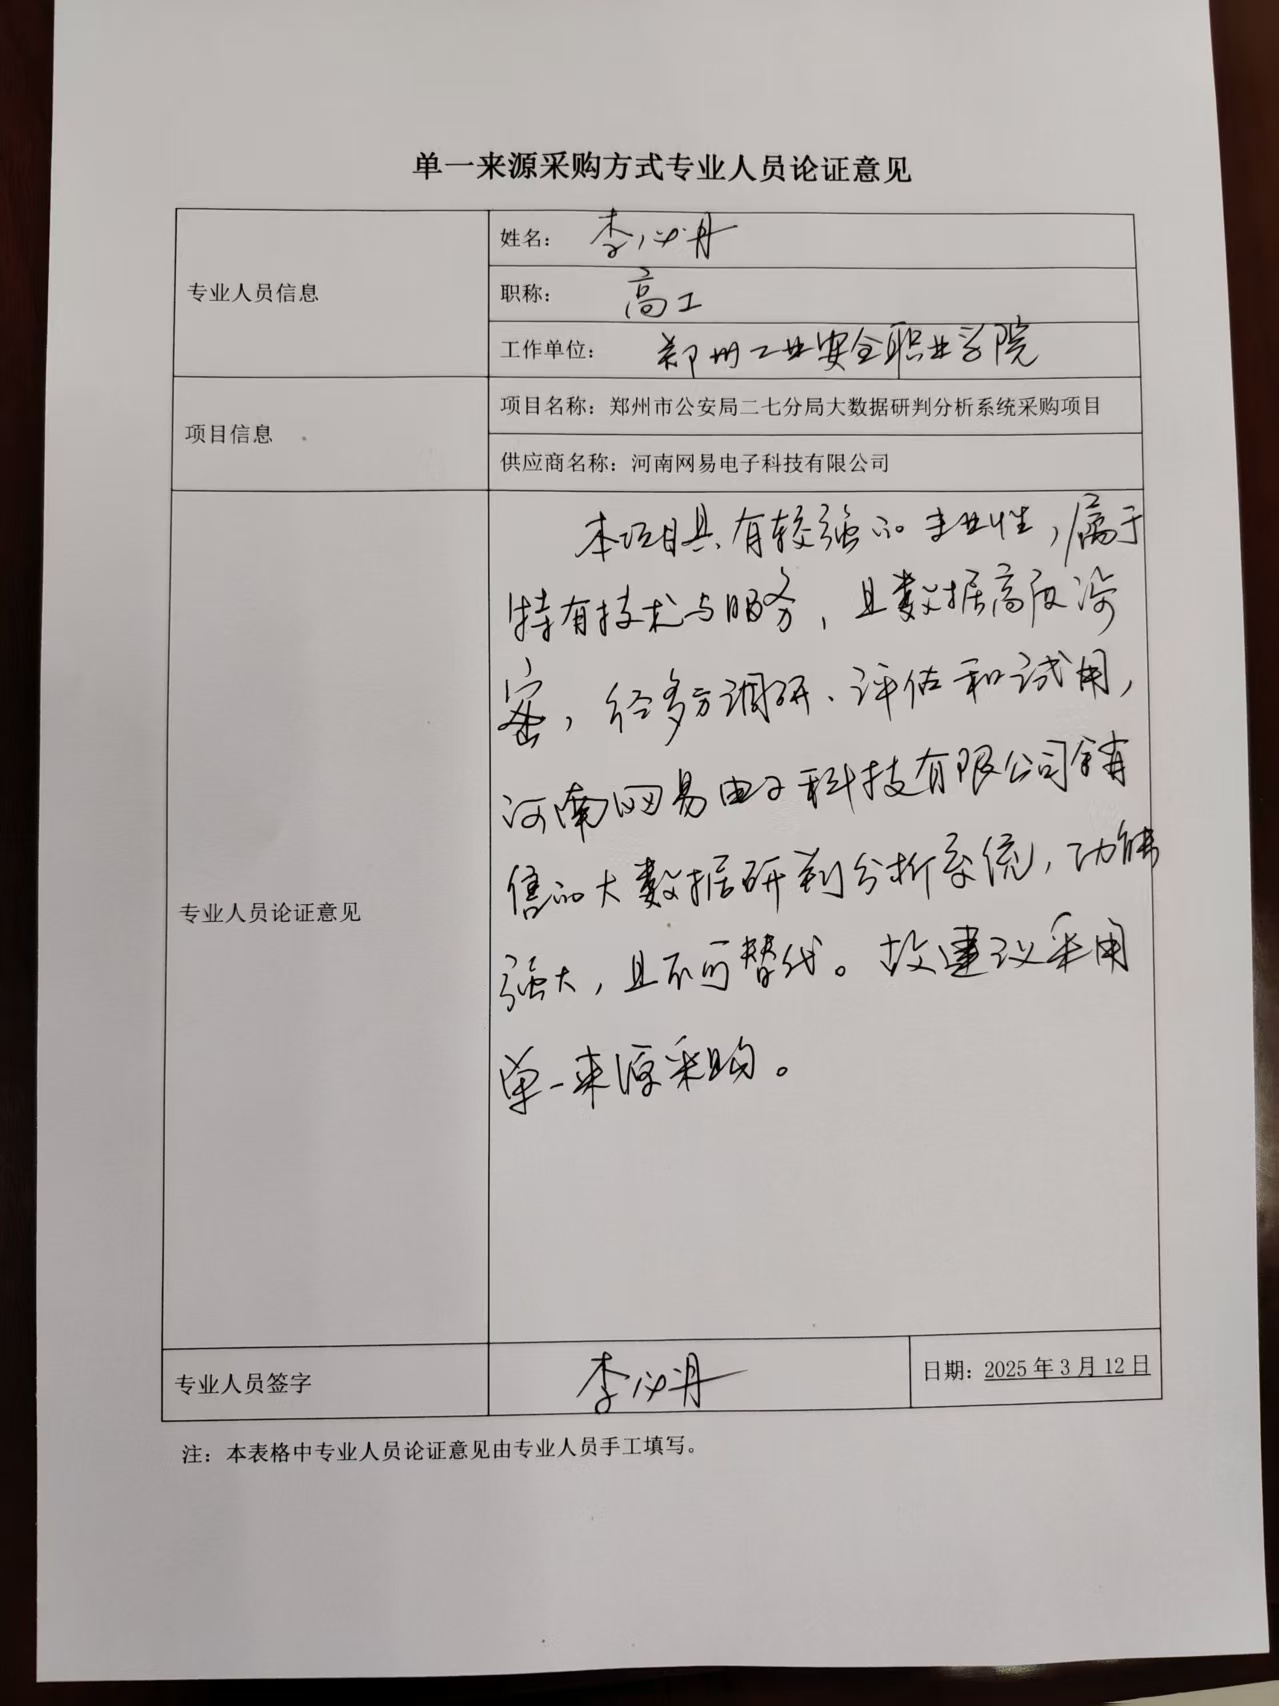 单一来源采购方式专业人员论证意见
专业人员信息
姓名：李必丹
职称：高工
工作单位：郑州工业安全职业学院
项目信息
项目名称：郑州市公安局二七分局大数据研判分析系统采购项目
供应商名称：河南网易电子科技有限公司
专业人员论证意见
本项目具有较强的专业性，属于
特有技术与服务，且数据高度涉
密，经多方调研、评估和试用，
河南网易电子科技有限公司销
售的大数据研判分析系统，功能
强大，且不可替代。故建议采用
单一来源采购。
专业人员签字
李必丹
日期：2025年3月12日
注：本表格中专业人员论证意见由专业人员手工填写。